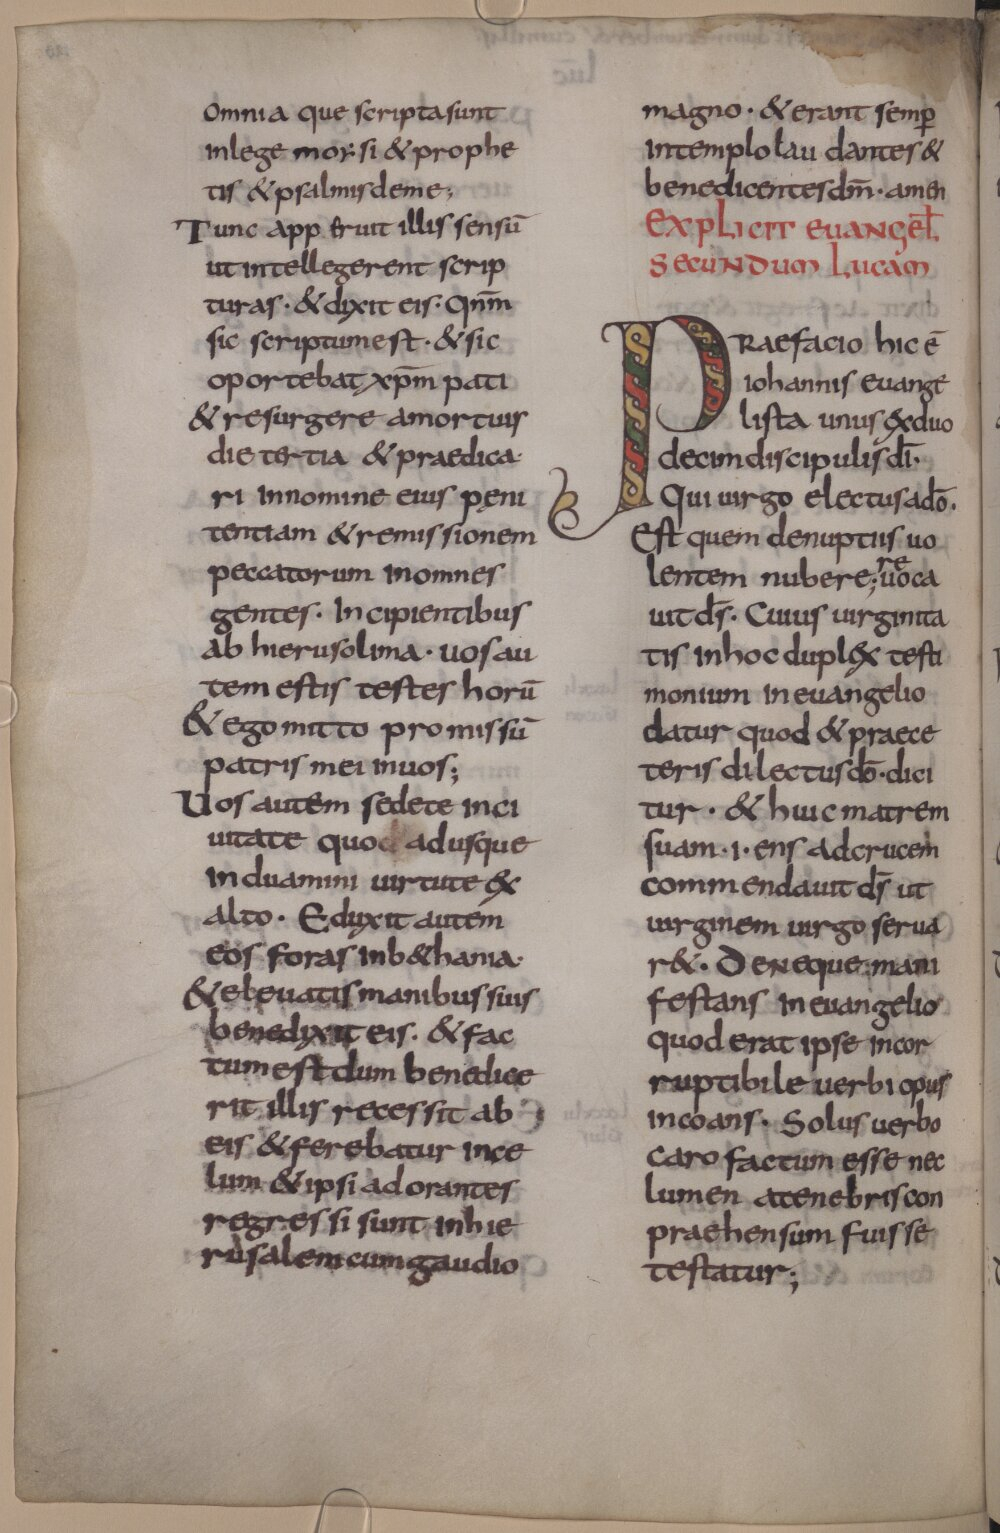 omnia que scripta sunt
in lege morsi & prophe
tis & psalmis de me;
Tunc apperuit illis sensū
ut intellegerent scrip
turas · & dixit eis · Qnm̄
sic scriptum est · & sic
oportebat xp̄m pati
& resurgere a mortuis
die tertia & praedica
ri in nomine eius peni
tentiam & remissionem
peccatorum in omnes
gentes · Incipientibus
ab hierusolima · uos au
tem estis testes horū
& ego mitto promissū
patris mei in uos;
Uos autem sedete in ci
uitate quod adusque
induamini uirtute ex
alto · Eduxit autem
eos foras in b&hania·
& eleuatis manibus suis
benedixit eis · & fac
tum est dum benedice
rit illis recessit ab
eis & ferebatur in ce
lum & ipsi adorantes
regressi sunt in hie
rusalem cum gaudio
magno · & erant semp̄
in templo lau dantes &
benedicentes dm̄ · amen
Explicit euangel̄
secundum Lucam
PRaefacio hic ē
iohannis euange
lista unus ex duo
decim discipulis dī·
Qui uirgo electus a dō·
Est quem de nuptiis uo
lentem nubere; reuoca
uit ds̄ · Cuius uirginita
tis in hoc duplex testi
monium in euangelio
datur quod & prae ce
teris dilectus dō · dici
tur · & huic matrem
suam · i · ens ad crucem
commendauit ds̄ ut
uirginem uirgo serua
r& · Deneque mani
festans in euangelio
quod erat ipse incor
ruptibile uerbi opus
incoans · Solus uerbo
caro factum esse nec
lumen a tenebris con
praehensum fuisse
testatur;